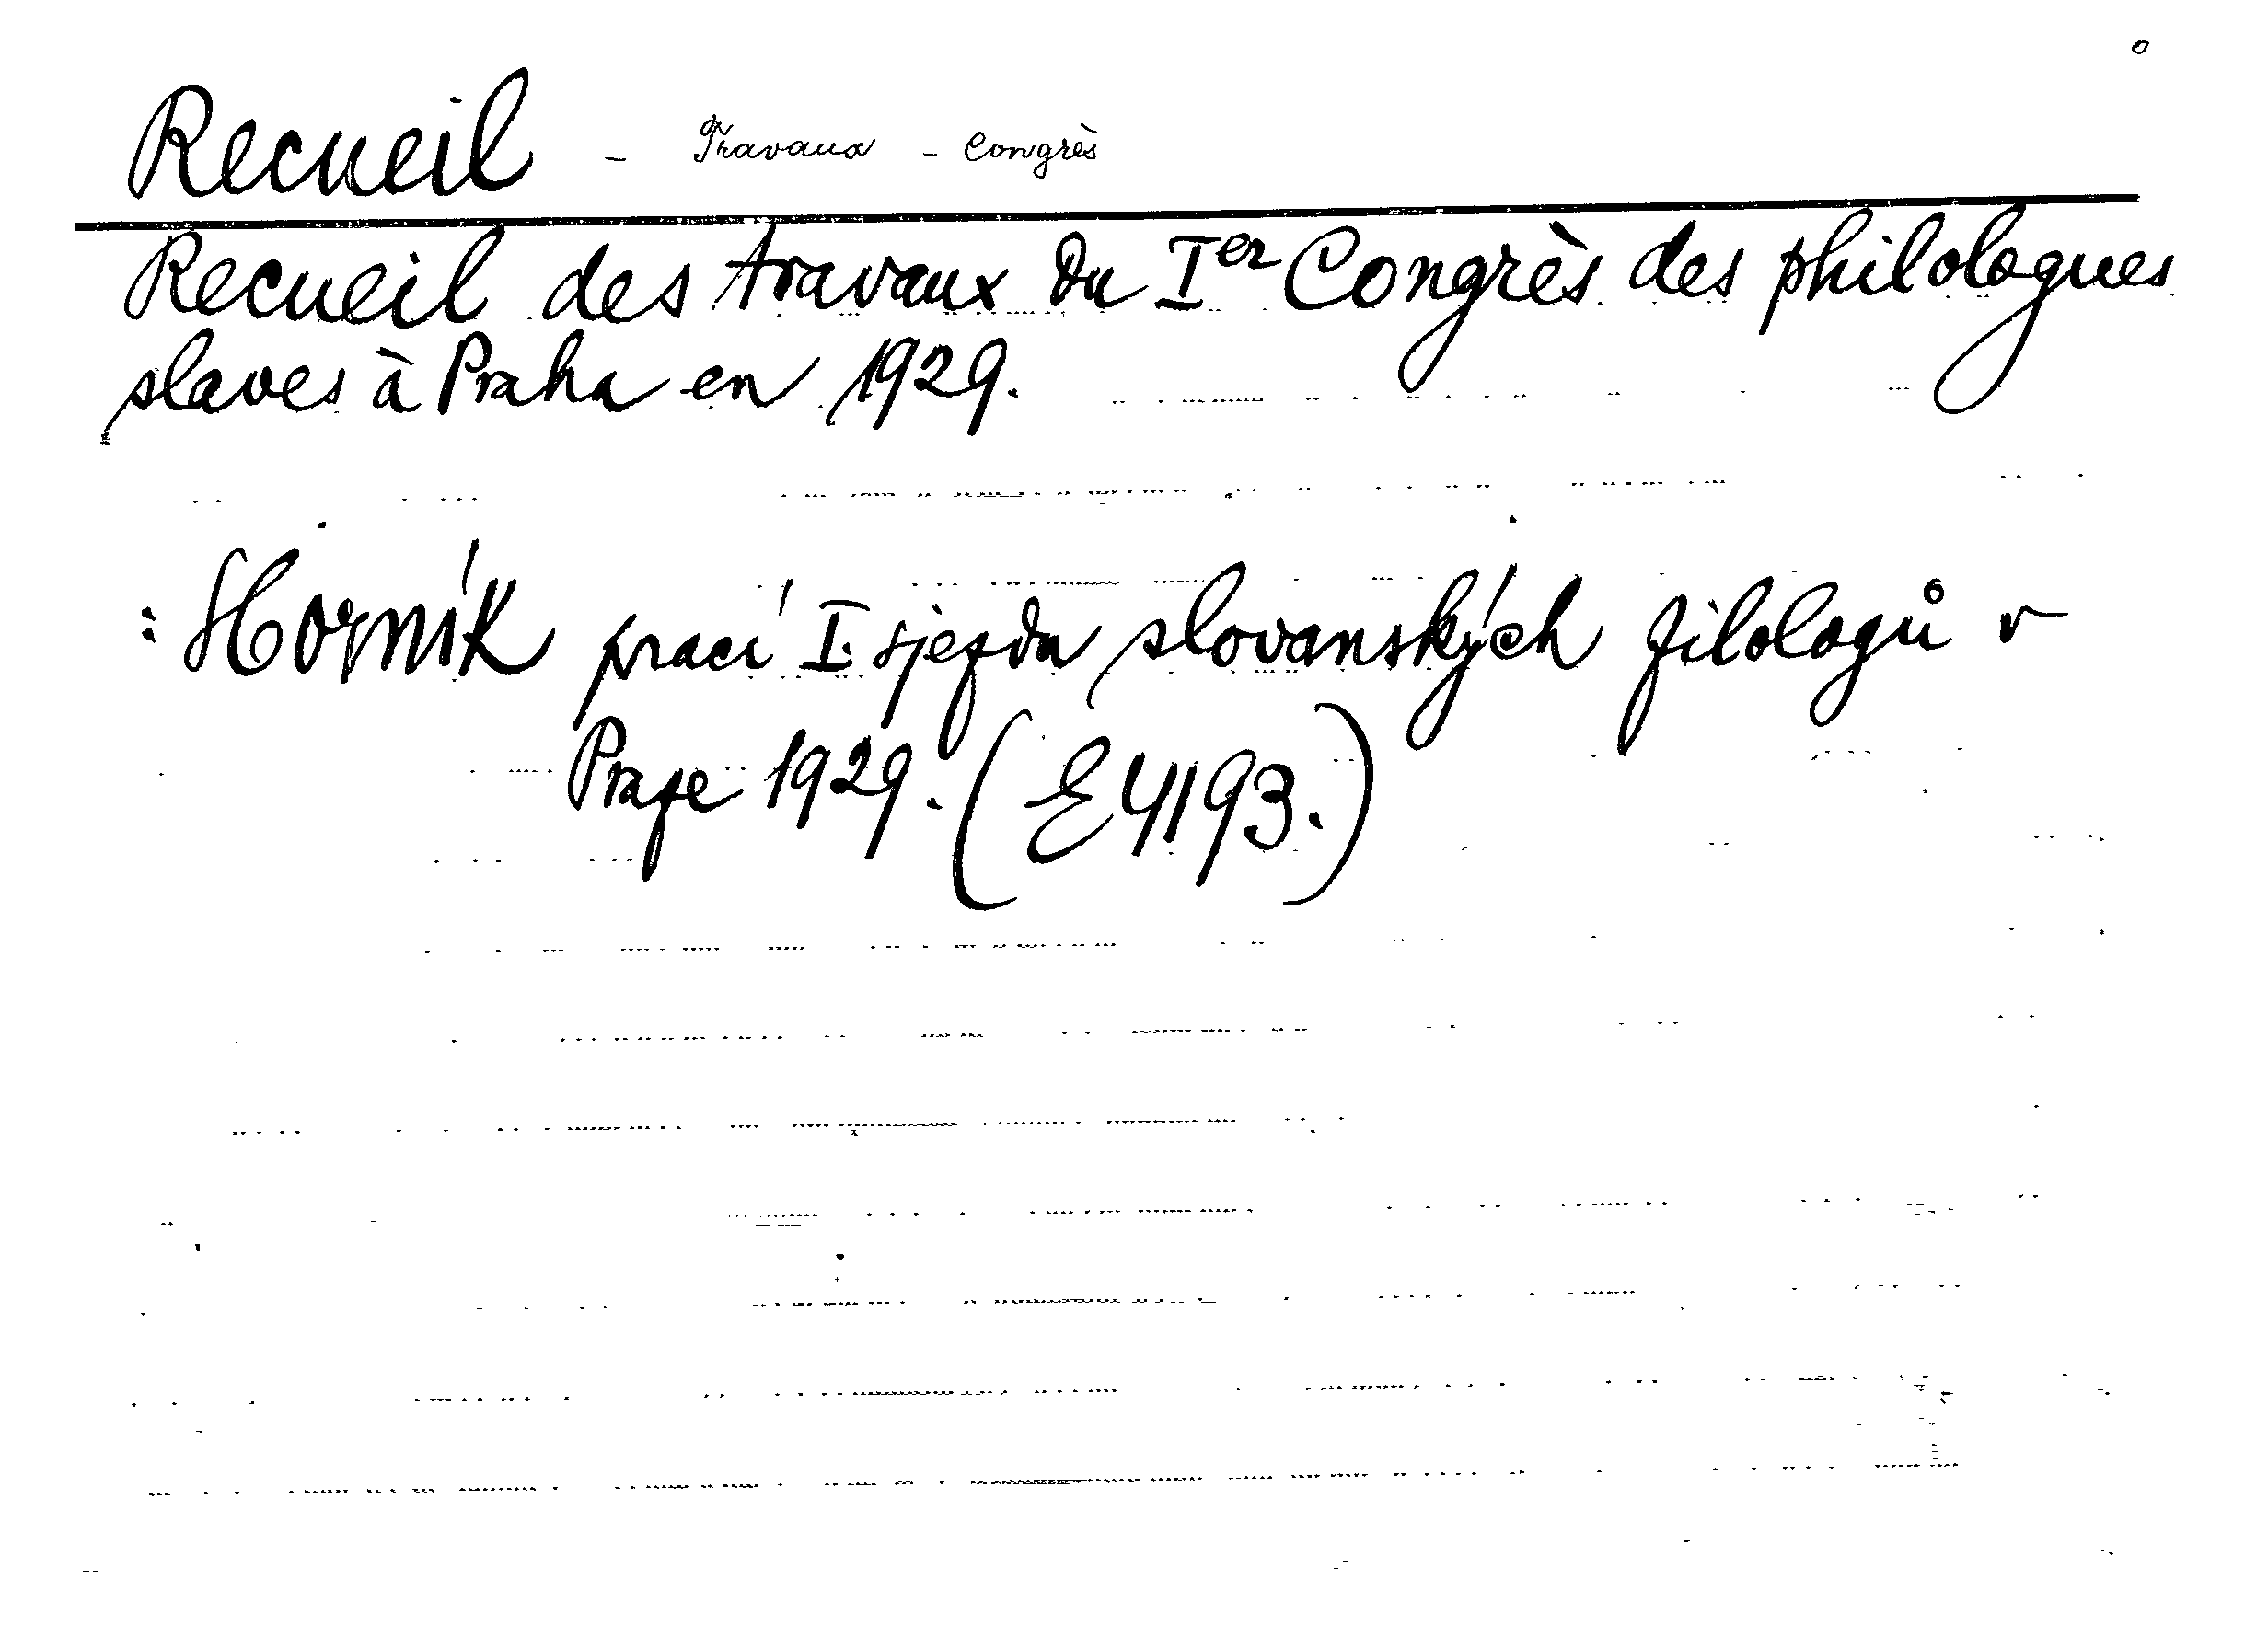 Recueil - Travaux - Congrès
Recueil des travaux du Ier Congrès des philologues
slaves à Praha en 1929.
: Sborník prací I. sjezdu slovanských filologů v
Praze 1929. (E4193.)